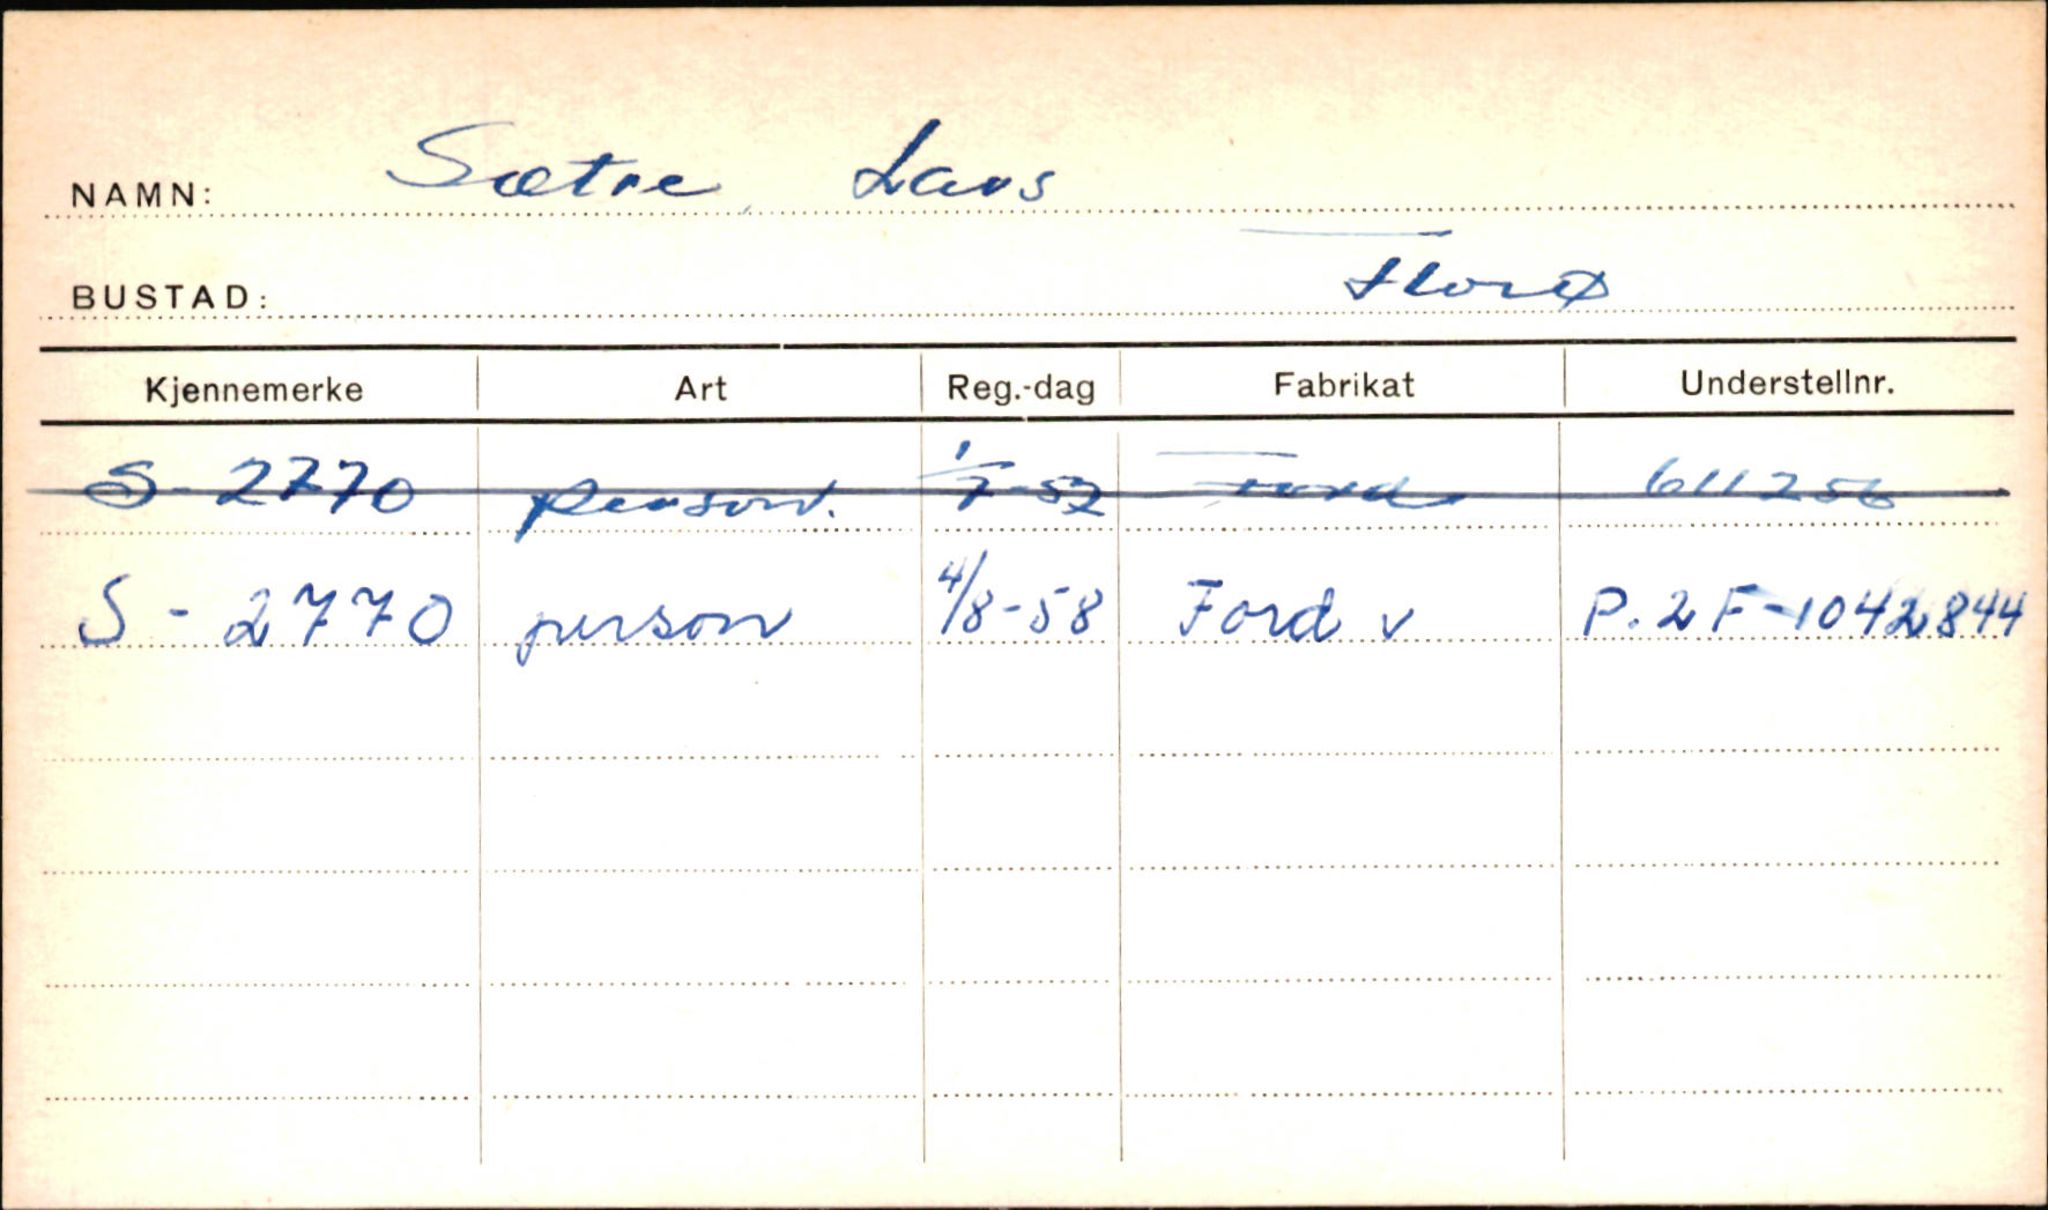 NAMN: Sætre, Lars
BUSTAD: Florø
Kjennemerke Art Reg.-dag Fabrikat Understellnr.
S - 2770 personv. 1/7-52 Ford 611256
S - 2770 person 4/8-58 Ford v P.2F-1042844